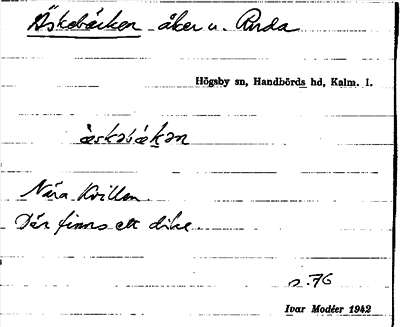 Äskebäcken åker u. Ruda
Högsby sn, Handbörds hd, Kalm. l.
æskəbækən
Nära Kvillen.
Där finns ett dike.
s. 76
Ivar Modéer 1942